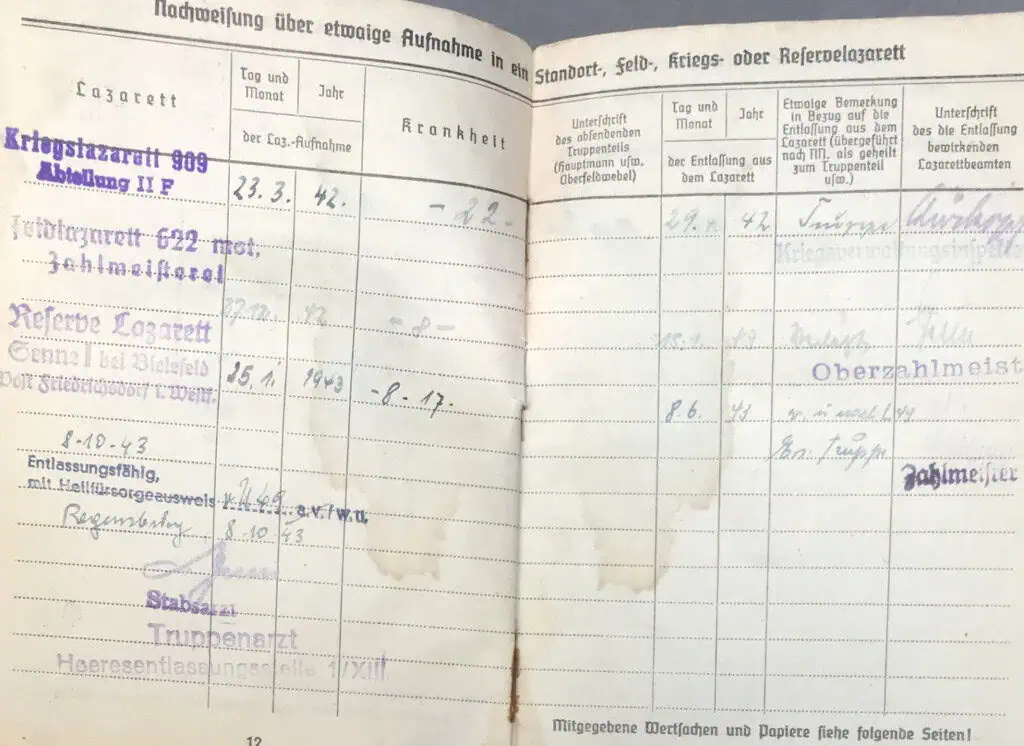 Nachweisung über etwaige Aufnahme in ein Standort-, Feld-, Kriegs- oder Reservelazarett
Lazarett
Tag und Monat
Jahr
der Laz.-Aufnahme
Krankheit
Unterschrift
des absendenden
Truppenteils
(Hauptmann usw.
Oberfeldwebel)
Tag und Monat
Jahr
der Entlassung aus
dem Lazarett
Etwaige Bemerkung
in Bezug auf die
Entlassung aus dem
Lazarett (übergeführt
nach NN. als geheilt
zum Truppenteil
usw.)
Unterschrift
des die Entlassung
bewirkenden
Lazarettbeamten
Kriegslazarett 909
Abteilung II F
23.3. 42. - 22 -
29. 42 Truppe
Kriegsverwaltungsinspektor
Feldlazarett 622 mot.
Zahlmeisterei
42 - 8 -
15.1. 43
Oberzahlmeist
Reserve Lazarett
Senne I bei Bielefeld
Post Friedrichsdorf i. Westf.
25.1. 1943 - 8 - 17.
8.6. 43
Ers. Truppe
Zahlmeister
8-10-43
Entlassungsfähig,
mit Heilfürsorgeausweis a.v./w.u.
Regensburg 8.10.43
Stabsarzt
Truppenarzt
Heeresentlassungsstelle 1/XIII
12
Mitgegebene Wertsachen und Papiere siehe folgende Seiten!